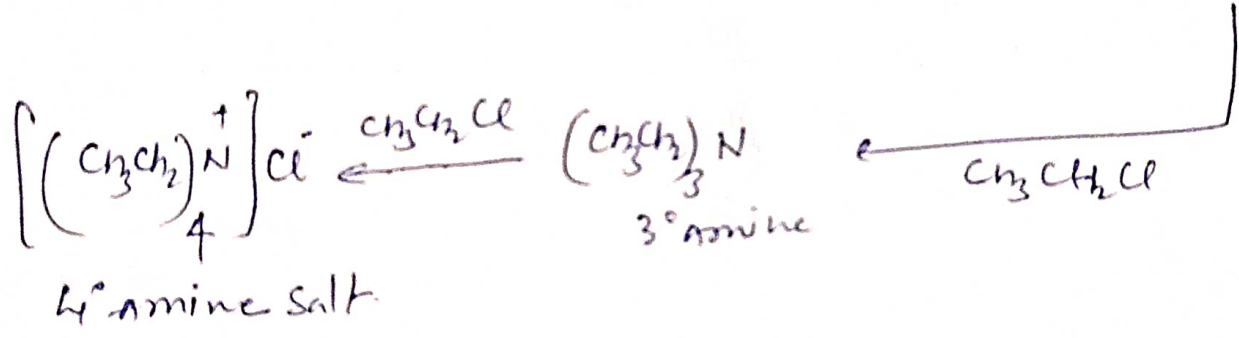 [(CH₃CH₂)₄N⁺]Cl⁻ ←CH₃CH₂Cl (CH₃CH₂)₃N ←CH₃CH₂Cl
3° amine
4° amine salt